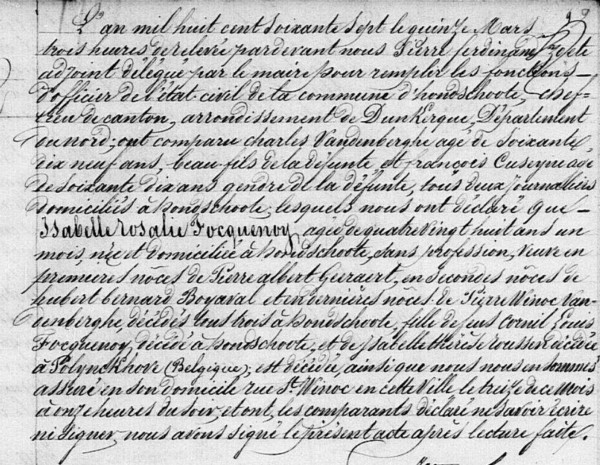 L'an mil huit cent soixante sept le quinze Mars
trois heures de relevée pardevant nous Pierre ferdinand
adjoint délégué par le maire pour remplir les fonctions
d'officier de l'état civil de la commune d'hondschoote, chef-
lieu de canton, arrondissement de Dunkerque, Département
du nord; ont comparu charles Vandenberghe agé de Soixante
dix neuf ans, beau-fils de la défunte et françois Cuseyne agé
de Soixante dix ans gendre de la défunte, tous deux journaliers
domiciliés à hondschoote; lesquels nous ont déclaré que
Isabelle rosalie Focquenoy agée de quatre vingt huit ans un
mois, née et domiciliée à hondschoote, sans profession, veuve en
premieres nôces de Pierre albert Geeraert, en secondes nôces de
hubert bernard Boyaval et en dernières nôces de Pierre Winoc Van-
denberghe, décédés tous trois à hondschoote, fille de feus Cornil Louis
Focquenoy, décédé à hondschoote, et de isabelle thérèse roussen décédée
à Polynckhove (Belgique); est décédée, ainsi que nous nous en sommes
assuré en son domicile rue St Winoc en cette Ville le treize de ce mois
à onze heures du soir, et ont, les comparants déclaré ne savoir écrire
ni signer, nous avons signé le présent acte après lecture faite.